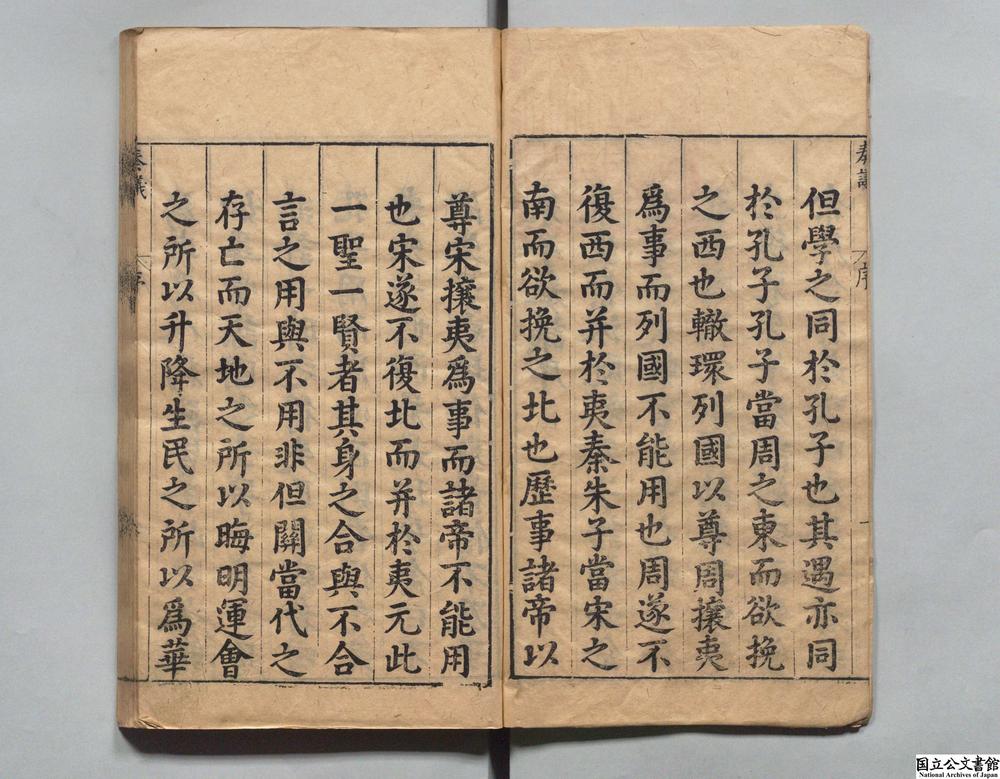 奏議
序
但學之同於孔子也其遇亦同
於孔子孔子當周之東而欲挽
之西也轍環列國以尊周攘夷
爲事而列國不能用也周遂不
復西而并於夷秦朱子當宋之
南而欲挽之北也歷事諸帝以
尊宋攘夷爲事而諸帝不能用
也宋遂不復北而并於夷元此
一聖一賢者其身之合與不合
言之用與不用非但關當代之
存亡而天地之所以晦明運會
之所以升降生民之所以爲華
奏議
序
国立公文書館
National Archives of Japan